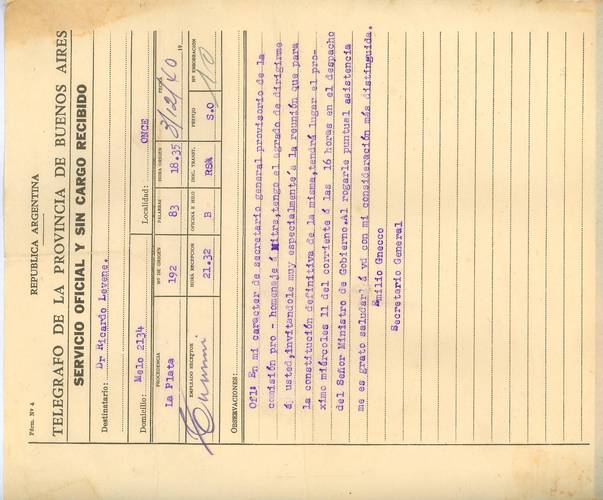 Fórm. Nº 4
REPUBLICA ARGENTINA
TELEGRAFO DE LA PROVINCIA DE BUENOS AIRES
SERVICIO OFICIAL Y SIN CARGO RECIBIDO
Destinatario: Dr Ricardo Levene.
Domicilio: Melo 2134 Localidad: ONCE
PROCEDENCIA Nº DE ORIGEN PALABRAS HORA ORIGEN FECHA 19
La Plata 192 83 18.35 9/12/40
EMPLEADO RECEPTOR HORA RECEPCION OFICINA E HILO INIC. TRANSMT. PREFIJO Nº RENUMERACION
21.32 B RSA S.O 10
OBSERVACIONES:
Ofl: En mi caracter de secretario general provisorio de la
comisión pro - homenaje á Mitre,tengo el agrado de dirigirme
á usted,invitandole muy especialmente á la reunión que para
la constitución definitiva de la misma,tendrá lugar el pro-
ximo miércoles 11 del corriente á las 16 horas en el despacho
del Señor Ministro de Gobierno.Al rogarle puntual asistencia
me es grato saludarl á vd con mi consideración más distinguida.
Emilio Gnecco
Secretario General